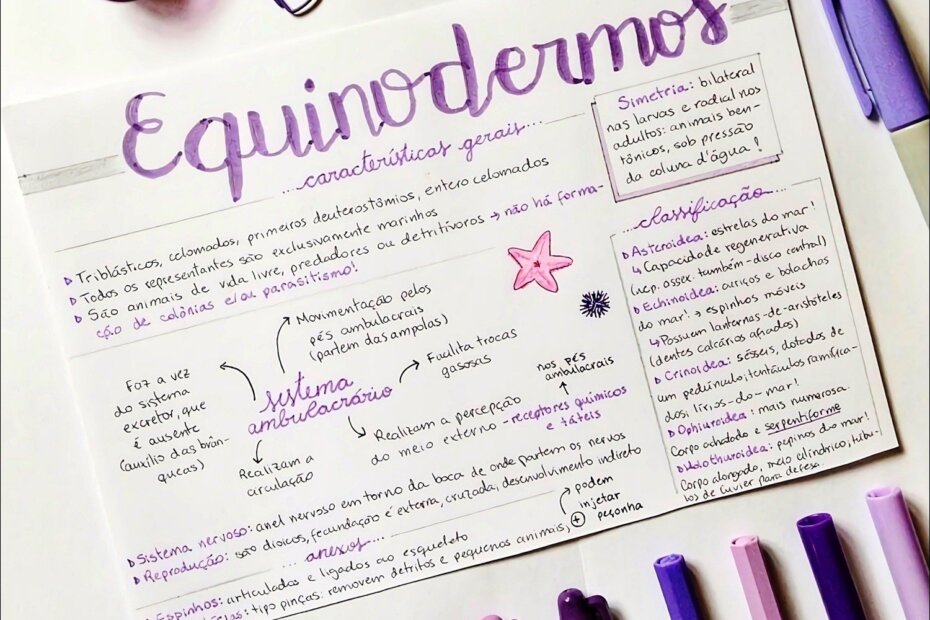 Equinodermos
...características gerais...
Triblásticos, celomados, primeiros deuterostômios, entero celomados
Todos os representantes são exclusivamente marinhos
São animais de vida livre, predadores ou detritívoros → não há forma-
ção de colônias e/ou parasitismo!
Simetria: bilateral
nas larvas e radial nos
adultos: animais ben-
tônicos, sob pressão
da coluna d'água!
...classificação...
Asteroidea: estrelas do mar!
↳ Capacidade regenerativa
(nep. ossex. também-disco central)
Echinoidea: ouriços e bolachas
do mar! → espinhos móveis
↳ Possuem lanternas-de-aristóteles
(dentes calcários afiados)
Crinoidea: sésseis, dotados de
um pedúnculo; tentáculos ramifica-
dos, lírios-do-mar!
Ophiuroidea: mais numerosa.
Corpo achatado e serpentiforme
Holothuroidea: pepinos do mar!
Corpo alongado, meio cilíndrico, túbu-
los de Cuvier para defesa.
sistema
ambulacrário
Movimentação pelos
pés ambulacrais
(partem das ampolas)
Facilita trocas
gasosas
Faz a vez
do sistema
excretor, que
é ausente
(auxílio das brân-
queas)
Realizam a
circulação
Realizam a percepção
do meio externo - receptores químicos
e táteis
nos pés
ambulacrais
Sistema nervoso: anel nervoso em torno da boca de onde partem os nervos
Reprodução: são dioicos, fecundação é externa, cruzada; desenvolvimento indireto
...anexos...
Espinhos: articulados e ligados ao esqueleto
tipo pinças: removem detritos e pequenos animais, +
podem
injetar
peçonha